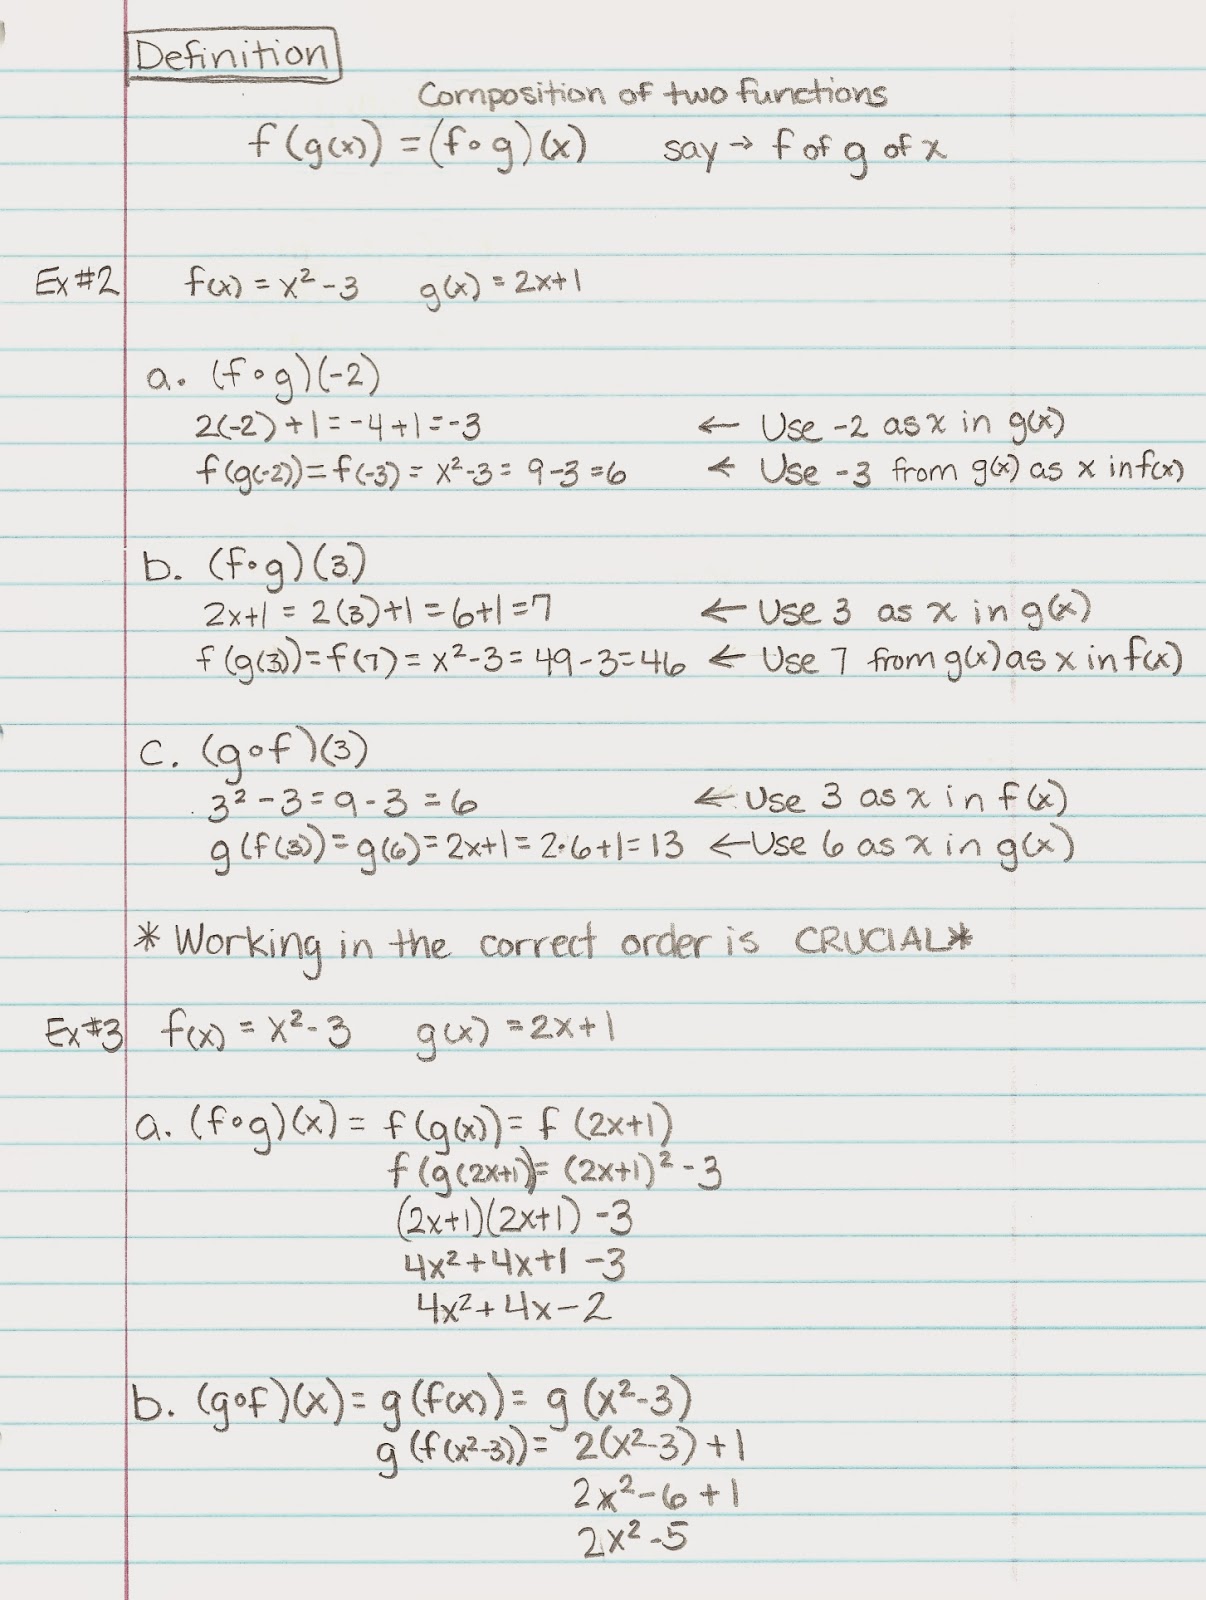 Definition
Composition of two functions
f(g(x)) = (f∘g)(x) say → f of g of x
Ex #2 f(x) = x² - 3 g(x) = 2x+1
a. (f∘g)(-2)
2(-2)+1 = -4+1 = -3 ← Use -2 as x in g(x)
f(g(-2)) = f(-3) = x²-3 = 9-3 = 6 ← Use -3 from g(x) as x in f(x)
b. (f∘g)(3)
2x+1 = 2(3)+1 = 6+1 = 7 ← Use 3 as x in g(x)
f(g(3)) = f(7) = x²-3 = 49-3 = 46 ← Use 7 from g(x) as x in f(x)
c. (g∘f)(3)
3² - 3 = 9 - 3 = 6 ← Use 3 as x in f(x)
g(f(3)) = g(6) = 2x+1 = 2·6+1 = 13 ← Use 6 as x in g(x)
* Working in the correct order is CRUCIAL*
Ex #3 f(x) = x² - 3 g(x) = 2x+1
a. (f∘g)(x) = f(g(x)) = f(2x+1)
f(g(2x+1)) = (2x+1)² - 3
(2x+1)(2x+1) - 3
4x² + 4x + 1 - 3
4x² + 4x - 2
b. (g∘f)(x) = g(f(x)) = g(x²-3)
g(f(x²-3)) = 2(x²-3) + 1
2x² - 6 + 1
2x² - 5